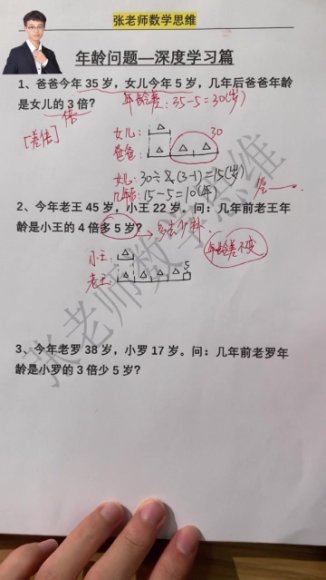 张老师数学思维
年龄问题—深度学习篇
1、爸爸今年 35 岁，女儿今年 5 岁，几年后爸爸年龄
是女儿的 3 倍？
年龄差：35-5=30(岁)
倍
[差倍]
女儿：
30
爸爸：
女儿：30÷(3-1)=15(岁)
几年后：15-5=10(年)
2、今年老王 45 岁，小王 22 岁。问：几年前老王年
龄是小王的 4 倍多 5 岁？
多去少补.
年龄差不变
小王：
5
老王：
3、今年老罗 38 岁，小罗 17 岁。问：几年前老罗年
龄是小罗的 3 倍少 5 岁？
张老师数学思维